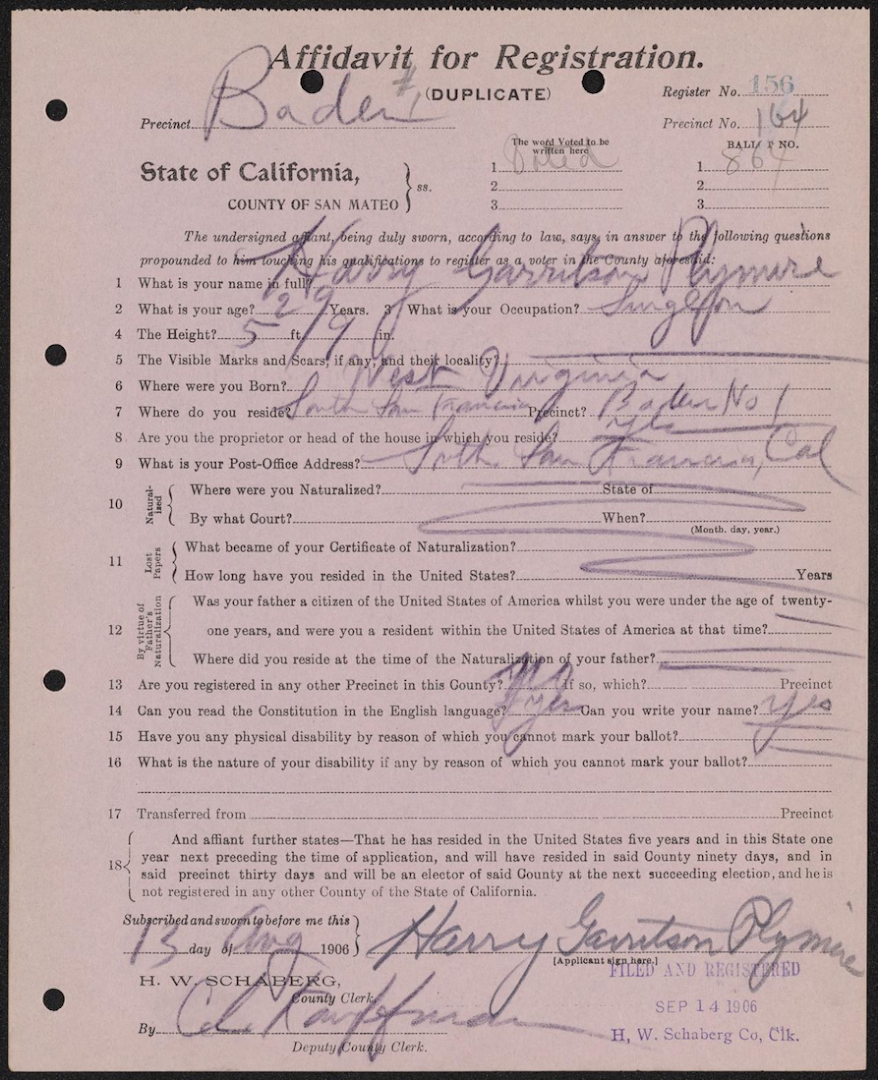 Affidavit for Registration.
(DUPLICATE)
Register No. 156
Precinct Baden #1
Precinct No. 164
The word Voted to be written here
BALLOT NO.
State of California,
COUNTY OF SAN MATEO
ss.
1 Voted
2
3
1 864
2
3
The undersigned affiant, being duly sworn, according to law, says, in answer to the following questions
propounded to him touching his qualifications to register as a voter in the County aforesaid:
1 What is your name in full? Harry Garritson Plymire
2 What is your age? 29 Years. 3 What is your Occupation? Surgeon
4 The Height? 5 ft 9 in.
5 The Visible Marks and Scars, if any, and their locality?
6 Where were you Born? West Virginia
7 Where do you reside? South San Francisco Precinct? Baden No 1
8 Are you the proprietor or head of the house in which you reside? yes
9 What is your Post-Office Address? South San Francisco, Cal
10 Naturalized Where were you Naturalized? State of
By what Court? When?
(Month, day, year.)
11 Lost Papers What became of your Certificate of Naturalization?
How long have you resided in the United States? Years
12 By virtue of Father's Naturalization Was your father a citizen of the United States of America whilst you were under the age of twenty-
one years, and were you a resident within the United States of America at that time?
Where did you reside at the time of the Naturalization of your father?
13 Are you registered in any other Precinct in this County? No If so, which? Precinct
14 Can you read the Constitution in the English language? yes Can you write your name? yes
15 Have you any physical disability by reason of which you cannot mark your ballot?
16 What is the nature of your disability if any by reason of which you cannot mark your ballot?
17 Transferred from Precinct
18 And affiant further states—That he has resided in the United States five years and in this State one
year next preceding the time of application, and will have resided in said County ninety days, and in
said precinct thirty days and will be an elector of said County at the next succeeding election, and he is
not registered in any other County of the State of California.
Subscribed and sworn to before me this
13 day of Aug 1906
Harry Garritson Plymire
[Applicant sign here.]
H. W. SCHABERG,
County Clerk.
By Kauffmann
Deputy County Clerk.
FILED AND REGISTERED
SEP 14 1906
H. W. Schaberg Co, Clk.